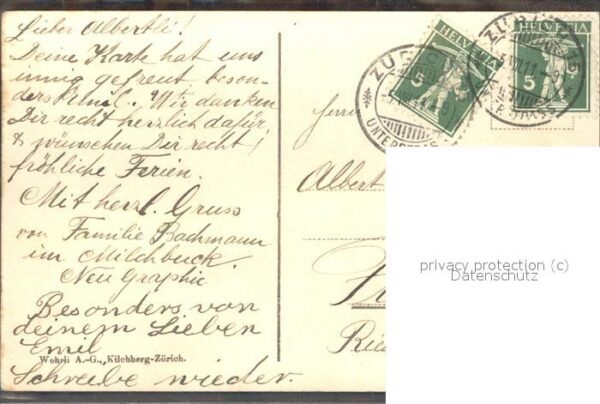 Lieber Albertli!
Deine Karte hat uns
innig gefreut beson-
ders Emil. Wir danken
Dir recht herzlich dafür,
& wünschen Dir recht
fröhliche Ferien.
Mit herzl. Gruss
von Familie Bachmann
im Milchbuck.
Neu Graphic
Besonders von
deinem Lieben
Emil
Wehrli A.-G., Kilchberg-Zürich.
Schreibe wieder.
HELVETIA
5
HELVETIA
5
ZÜRICH
UNTERSTRAS
Herrn
Albert
privacy protection (c)
Datenschutz